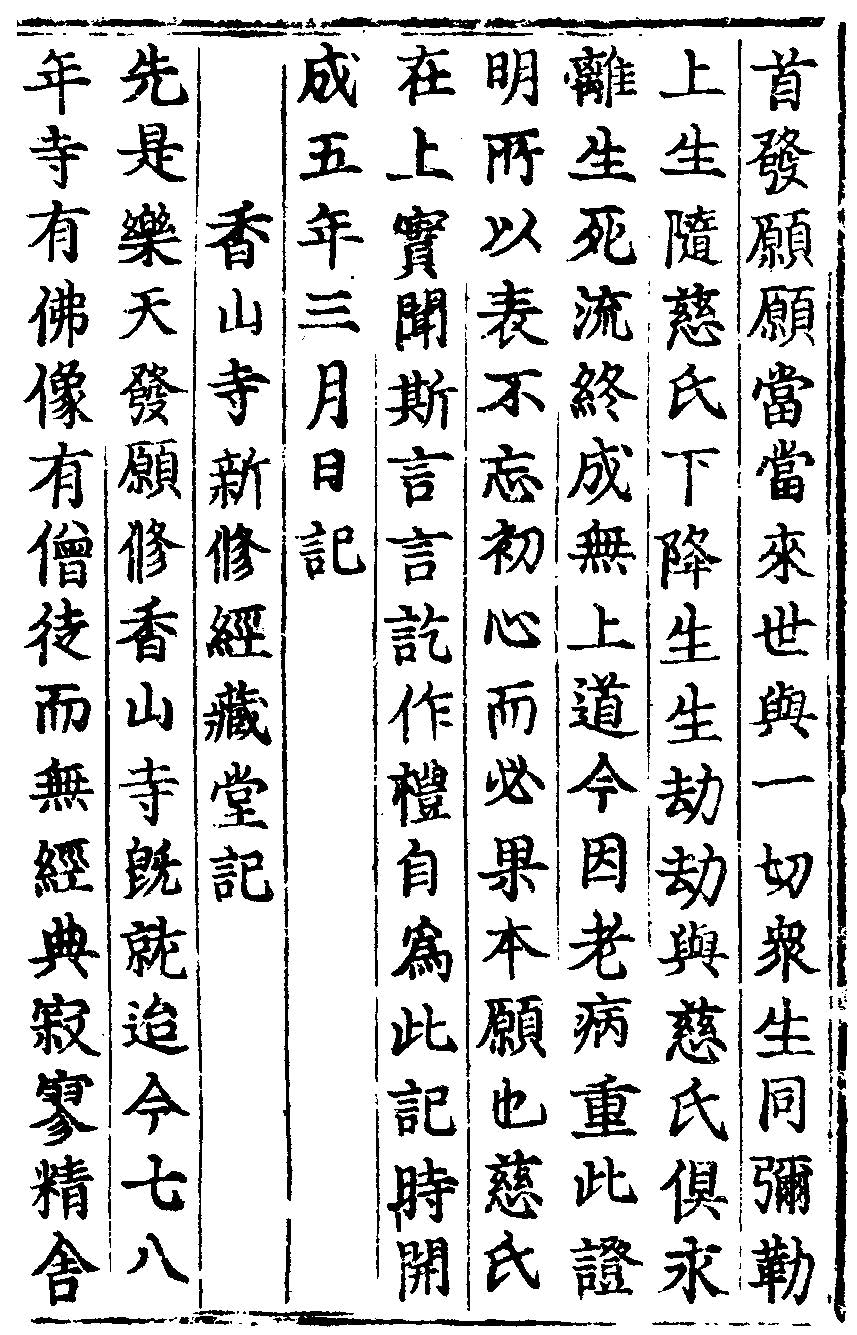 首發願願當當來世與一切衆生同彌勒
上生隨慈氏下降生生劫劫與慈氏俱永
離生死流終成無上道今因老病重此證
明所以表不忘初心而必果本願也慈氏
在上實聞斯言言訖作禮自爲此記時開
成五年三月日記
香山寺新修經藏堂記
先是樂天發願修香山寺旣就迨今七八
年寺有佛像有僧徒而無經典寂寥精舍